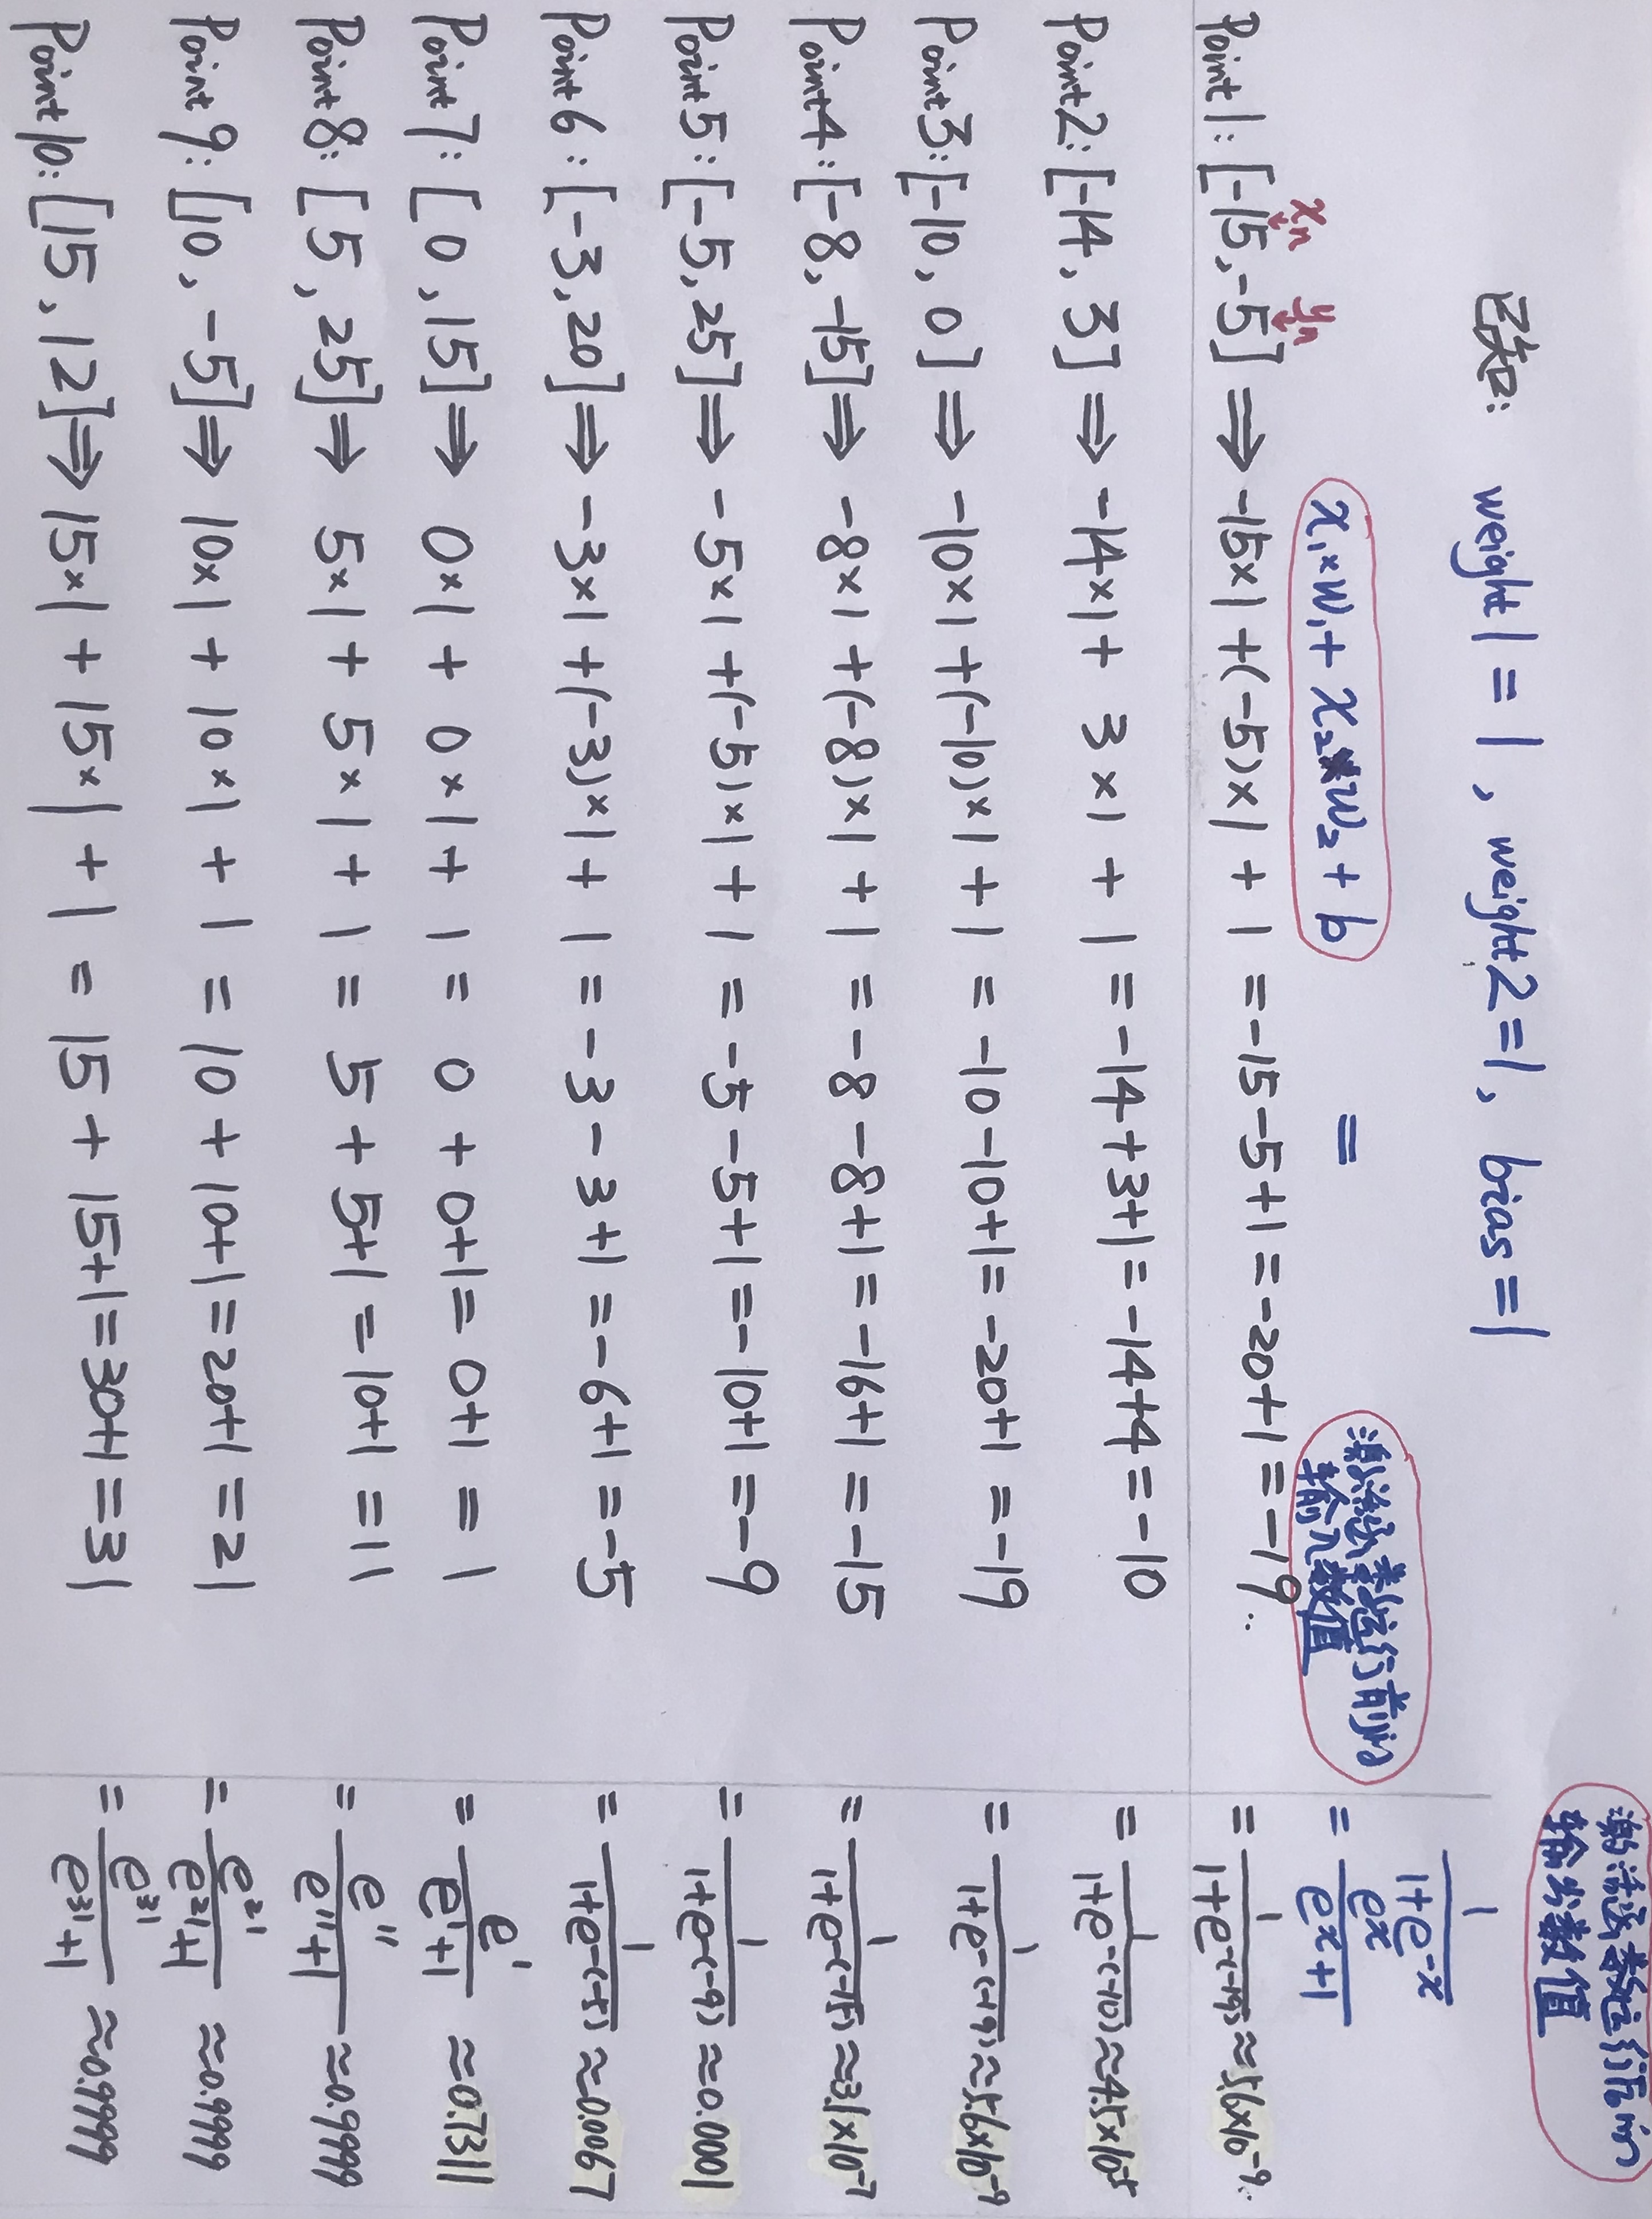 激活函数运行后的
输出数值
已知: weight1 = 1 , weight2=1, bias=1
1/(1+e^-x)
x₁×w₁+ x₂×w₂ + b = 激活函数运行前的
输入数值
= e^x/(e^x+1)
xn yn
Point1: [-15,-5] ⟹ -15×1 +(-5)×1 + 1 = -15-5+1 = -20+1 = -19.. = 1/(1+e^-(-19)) ≈ 5.6×10^-9..
Point2: [-14, 3] ⟹ -14×1 + 3×1 + 1 = -14+3+1 = -14+4 = -10 = 1/(1+e^-(-10)) ≈ 4.5×10^-5
Point3: [-10, 0] ⟹ -10×1 +(-10)×1 + 1 = -10-10+1 = -20+1 = -19 = 1/(1+e^-(-19)) ≈ 5.6×10^-9
Point4: [-8, -15] ⟹ -8×1 +(-8)×1 + 1 = -8-8+1 = -16+1 = -15 = 1/(1+e^-(-15)) ≈ 3.1×10^-7
Point5: [-5, 25] ⟹ -5×1 +(-5)×1 + 1 = -5-5+1 = -10+1 = -9 = 1/(1+e^-(-9)) ≈ 0.0001
Point6: [-3, 20] ⟹ -3×1 +(-3)×1 + 1 = -3-3+1 = -6+1 = -5 = 1/(1+e^-(-5)) ≈ 0.0067
Point7: [0, 15] ⟹ 0×1 + 0×1 + 1 = 0 + 0+1 = 0+1 = 1 = e^1/(e^1+1) ≈ 0.7311
Point8: [5, 25] ⟹ 5×1 + 5×1 + 1 = 5 + 5+1 = 10+1 = 11 = e^11/(e^11+1) ≈ 0.9999
Point9: [10, -5] ⟹ 10×1 + 10×1 + 1 = 10 + 10+1 = 20+1 = 21 = e^21/(e^21+1) ≈ 0.9999
Point10: [15, 12] ⟹ 15×1 + 15×1 + 1 = 15 + 15+1 = 30+1 = 31 = e^31/(e^31+1) ≈ 0.9999